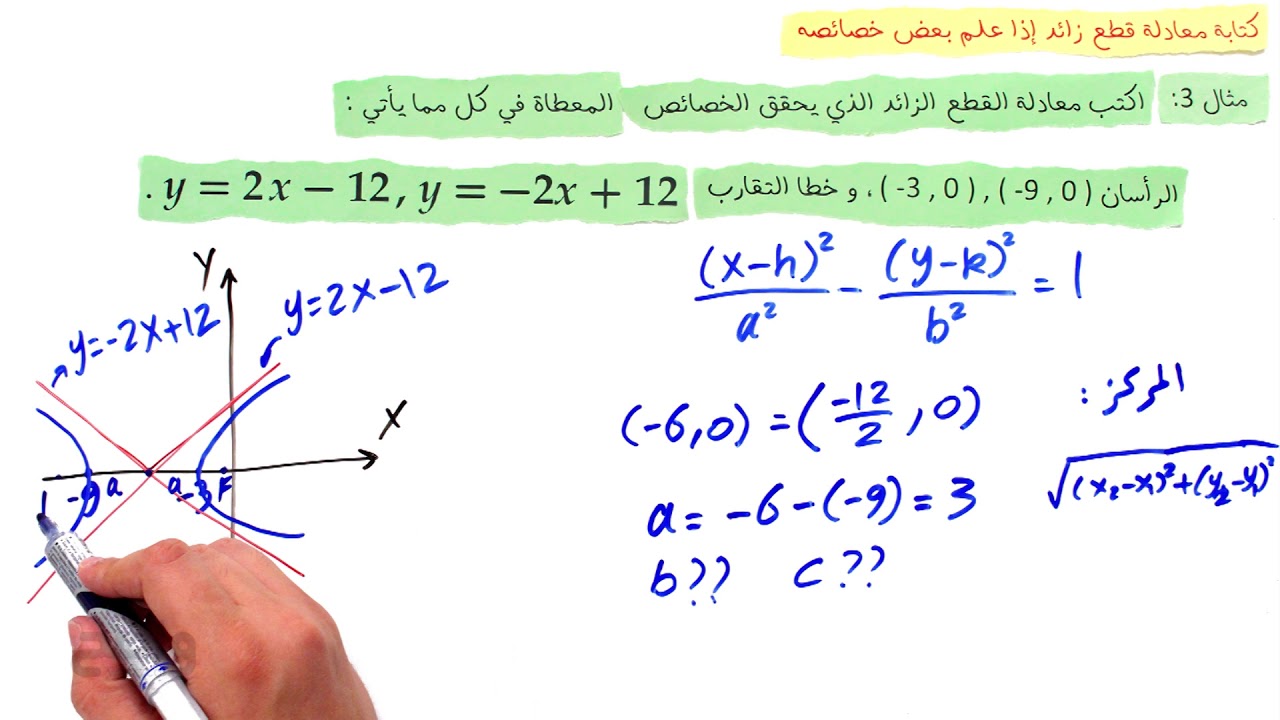 كتابة معادلة قطع زائد إذا علم بعض خصائصه
مثال 3: اكتب معادلة القطع الزائد الذي يحقق الخصائص المعطاة في كل مما يأتي :
الرأسان ( 0 , 9- ) , ( 0 , 3- ) ، و خطا التقارب y = 2x − 12, y = −2x + 12 .
(x-h)²/a² - (y-k)²/b² = 1
المركز :
(-6,0) = (-12/2 , 0)
√(x₂-x₁)²+(y₂-y₁)²
a = -6-(-9) = 3
b ?? c ??
Y
y=2x-12
y=-2x+12
X
-9 a a -3 F